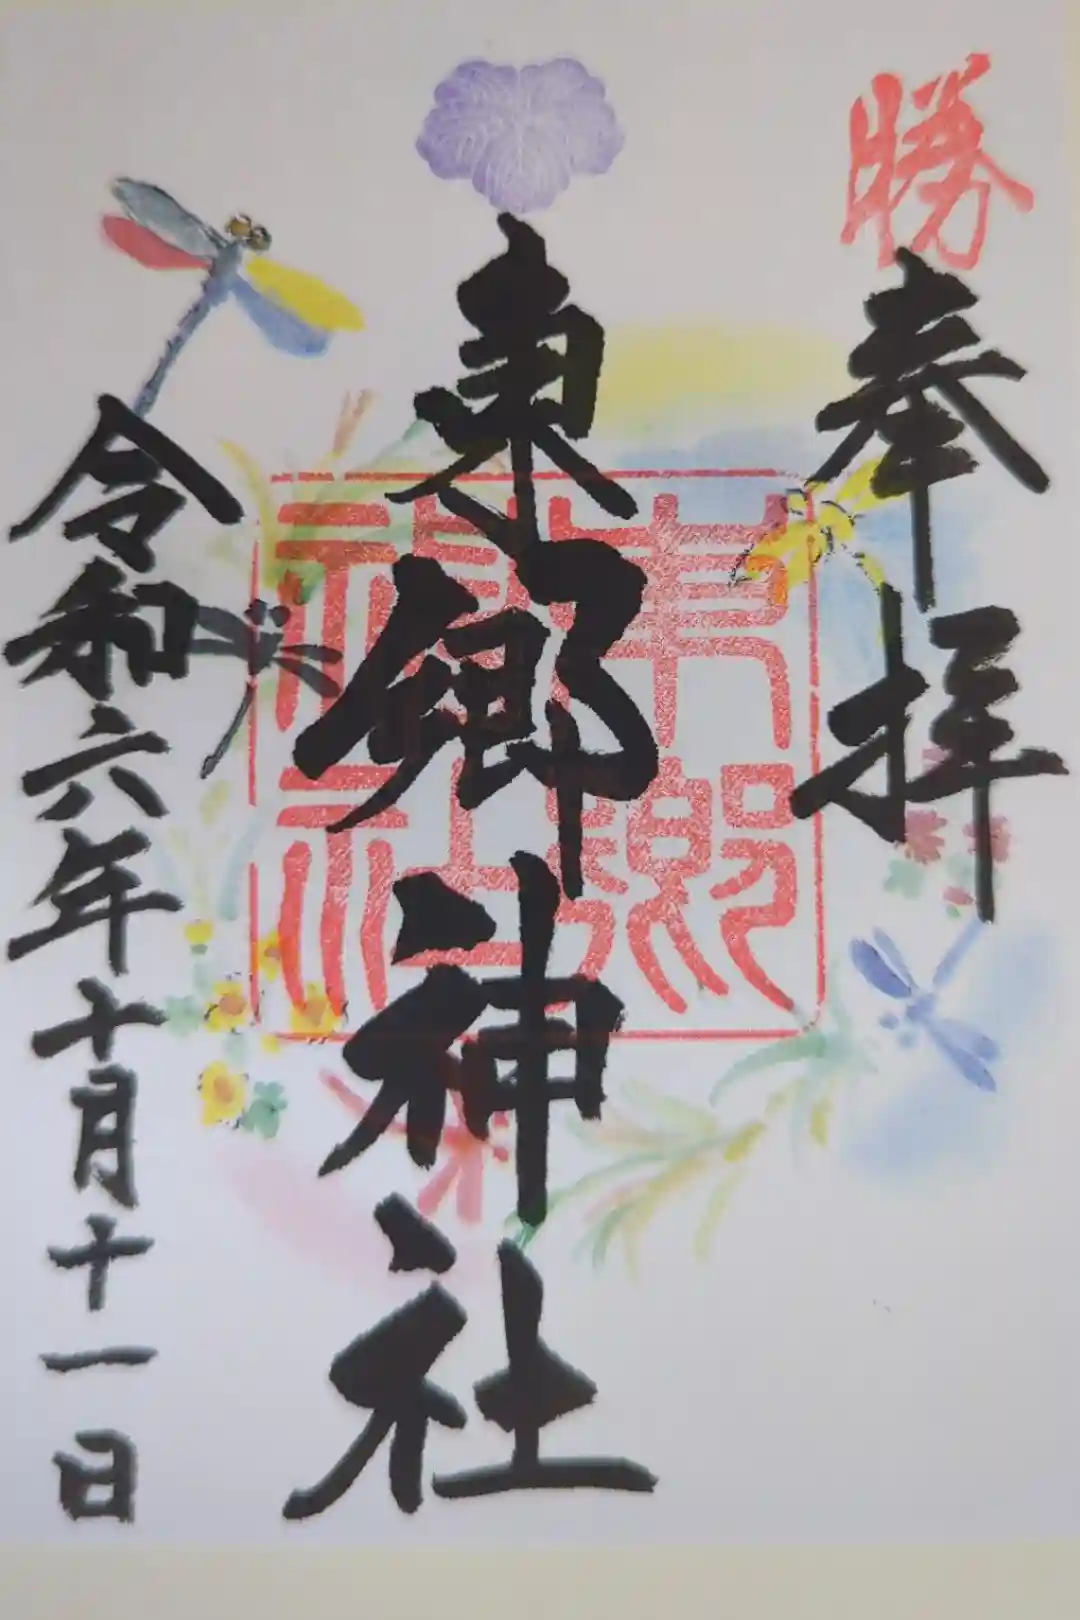 勝
奉拝
東郷神社
東郷神社
令和六年十月十一日